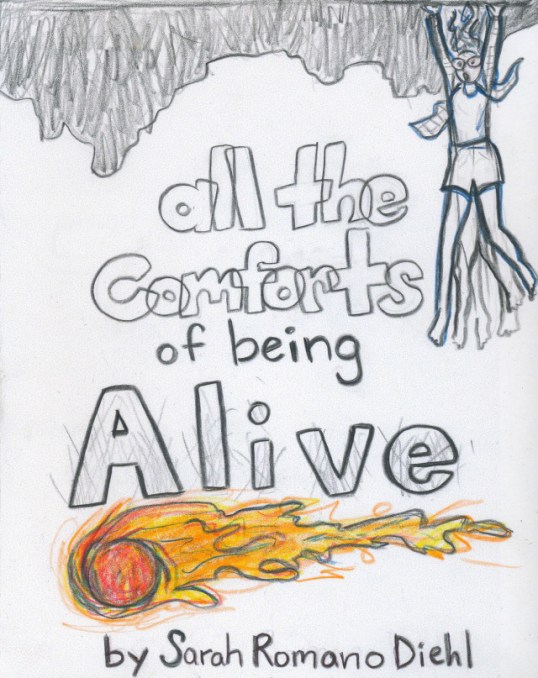 all the
Comforts
of being
Alive
by Sarah Romano Diehl